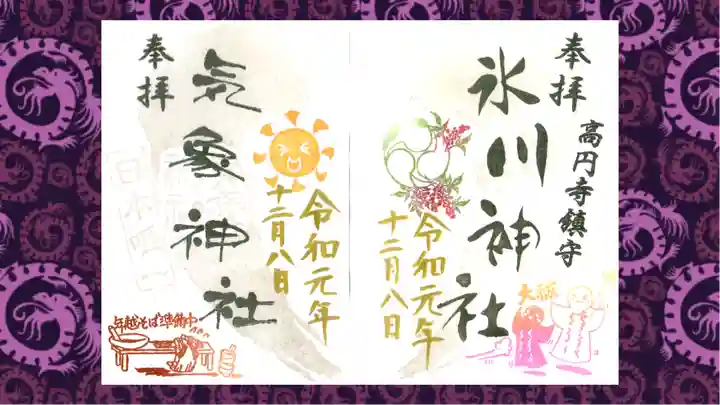 奉拝
高円寺鎮守
氷川神社
令和元年
十二月八日
大祓
奉拝
気象神社
令和元年
十二月八日
年越そば準備中